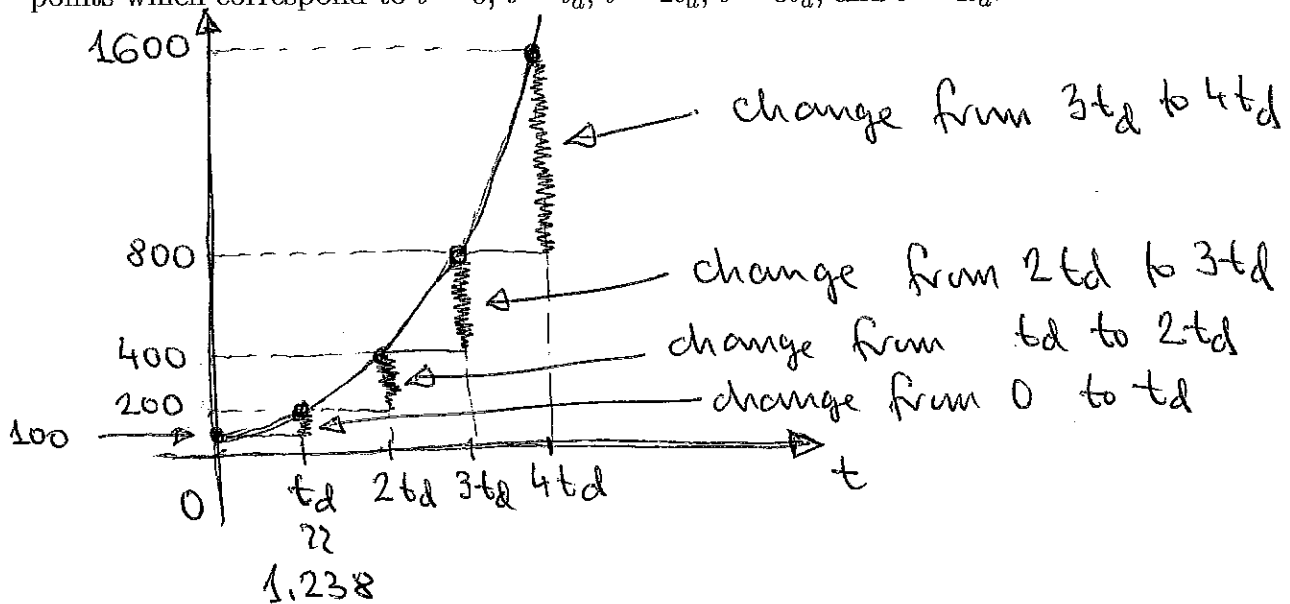 points which correspond to t = 0, t = t_d, t = 2t_d, t = 3t_d, and t = 4t_d.
1600
change from 3t_d to 4t_d
800
change from 2t_d to 3t_d
400
change from t_d to 2t_d
200
change from 0 to t_d
100
0
t_d 2t_d 3t_d 4t_d
t
≈
1.238